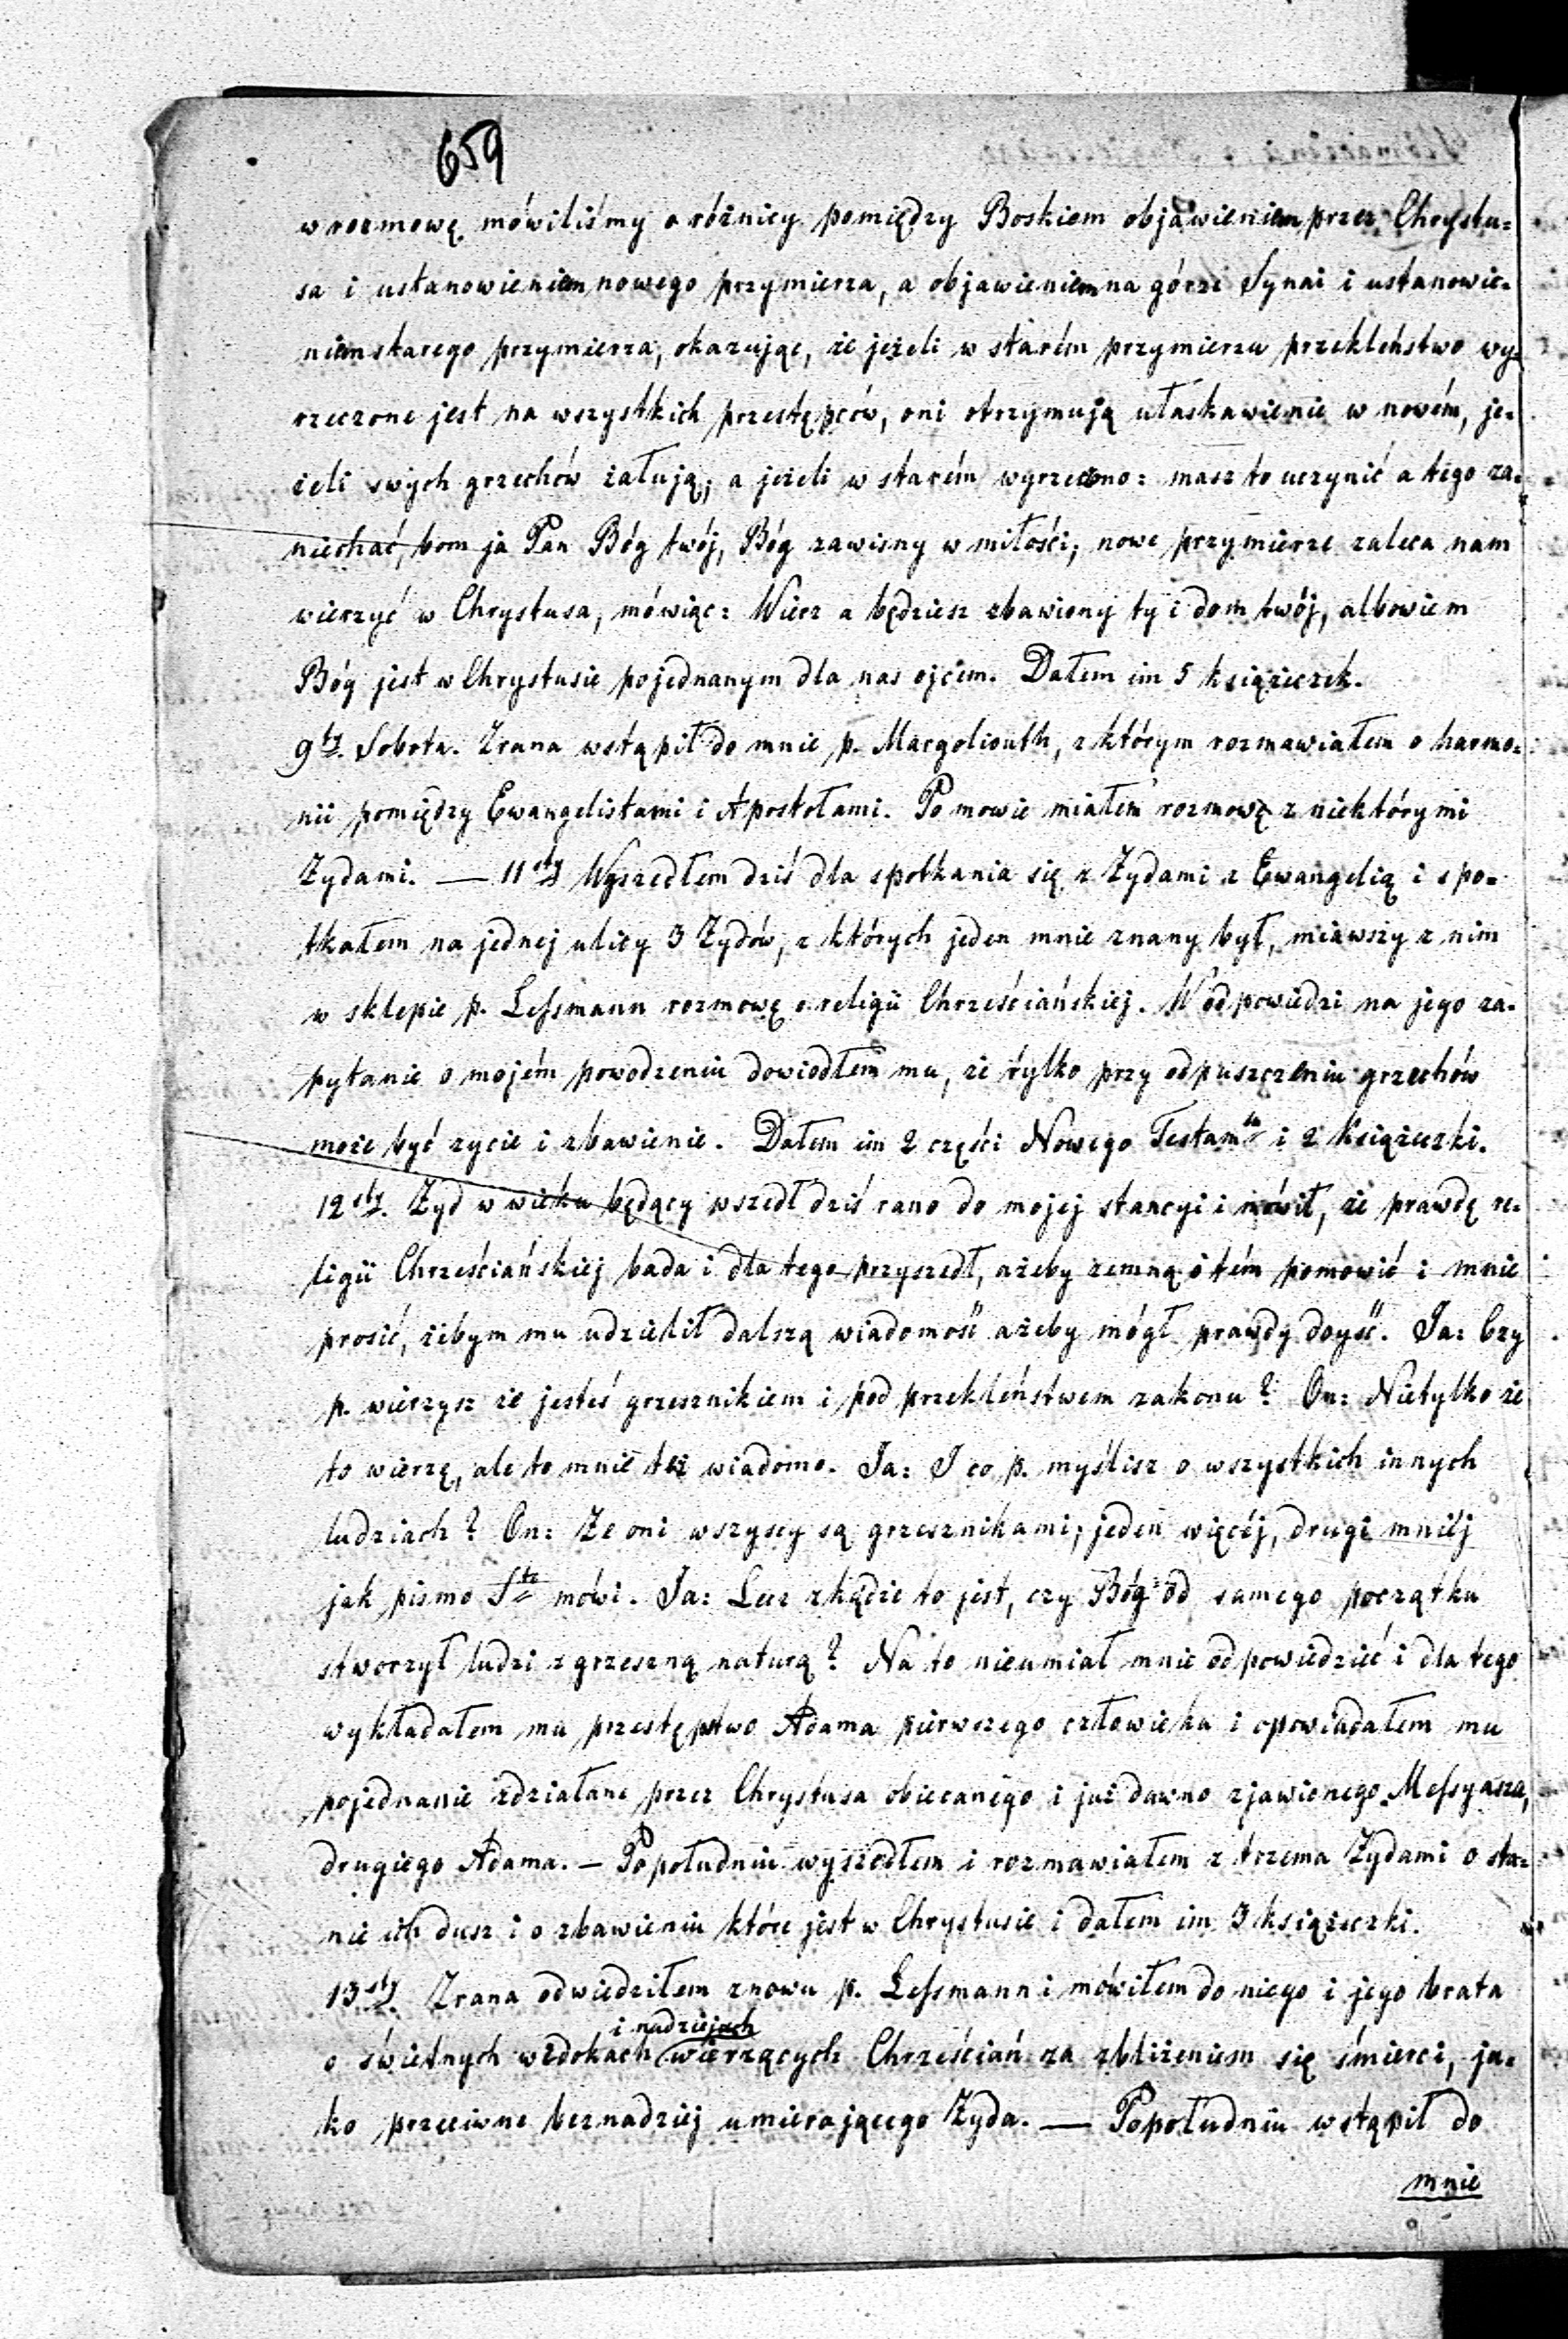 659
w rozmowę mówiliśmy o różnicy pomiędzy Boskiem objawieniem przez Chrystu=
sa i ustanowieniem nowego przymierza, a objawieniem na górze Synai i ustanowie=
niem starego przymierza, okazując, że jeżeli w starém przymierzu przekleństwo wy=
rzeczone jest na wszystkich przestępców, oni otrzymują ułaskawienie w novém, je=
żeli swych grzechów żałują; a jeżeli w starém wyrzeczono: masz to uczynić a tego za=
niechać, bom ja Pan Bóg twój, Bóg zawisny w miłości, nowe przymierze zaleca nam
wierzyć w Chrystusa, mówiąc: Wierz a będziesz zbawiony ty i dom twój, albowiem
Bóg jest w Chrystusie pojednanym dla nas ojcem. Dałem im 5 książeczek.
9ty. Sobota. Zrana wstąpił do mnie p. Margoliouth, z którym rozmawiałem o harmo=
nii pomiędzy Ewangelistami i Apostołami. Po mowie miałem rozmowę z niektórymi
Żydami. — 11sty Wyszedłem dziś dla spotkania się z Żydami z Ewangelią i spo=
tkałem na jednej ulicy 3 Żydów, z których jeden mnie znany był, miawszy z nim
w sklepie p. Lessmann rozmowę o religii Chrześciańskiej. W odpowiedzi na jego za=
pytanie o mojém powodzeniu dowiodłem mu, że tylko przy odpuszczeniu grzechów
może być zycie i zbawienie. Dałem im 2 części Nowego Testamtu i 2 książeczki.
12sty. Żyd w wieku będący wszedł dziś rano do mojej stancyi i mówił, że prawdę re=
ligii Chrześciańskiej bada i dla tego przyszedł, ażeby zemną o tém pomowić i mnie
prosić, żebym mu udzielił dalszą wiadomość ażeby mógł prawdy dojść. Ja: Czy
p. wierzysz że jesteś grzesznikiem i pod przekleństwem zakonu? On: Nietylko że
to wierzę, ale to mnie też wiadomo. Ja: I co p. myślisz o wszystkich innych
ludziach? On: Że oni wszyscy są grzesznikami, jeden więcéj, drugi mniéj
jak pismo Ste mówi. Ja: Lecz zkądże to jest, czy Bóg od samego początku
stworzył ludzi z grzeszną naturą? Na to nieumiał mnie odpowiedzieć i dla tego
wykładałem mu przestępstwo Adama pierwszego człowieka i opowiadałem mu
pojednanie zdziałane przez Chrystusa obiecanego i już dawno zjawionego Messyasza,
drugiego Adama. — Popołudniu wyszedłem i rozmawiałem z trzema Żydami o sta=
nie ich dusz i o zbawieniu które jest w Chrystusie i dałem im 3 książeczki.
13sty. Zrana odwiedziłem znowu p. Lessmann i mówiłem do niego i jego brata
i nadziejach
o świetnych widokach wierzących Chrześcian za zbliżeniem się śmierci, ja=
ko przeciwne beznadziej umierającego Żyda. — Popołudniu wstąpił do
mnie